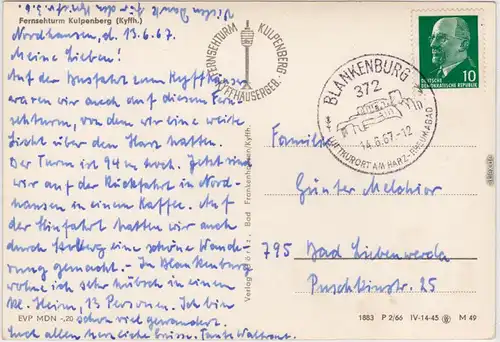 Vielen Dank für den Brief v. 3.6.
Fernsehturm Kulpenberg (Kyffh.)
Nordhausen, d. 13.6.67.
Meine Lieben!
Auf der Ausfahrt zum Kyffhäuser
waren wir auch auf diesem Fern=
sehturm, von dem wir eine weite
Sicht über dem Harz hatten.
Der Turm ist 94 m hoch. Jetzt sind
wir auf der Rückfahrt in Nord-
hausen in einem Kaffee. Auf
der Hinfahrt hatten wir auch
durch Stolberg eine schöne Wande
rung gemacht. - In Blankenburg
wohne ich sehr hübsch in einem
kl. Heim, 13 Personen. Ich bin
schon viel gewandert.
Euch allen herzliche Grüsse. Tante Waltraut.
EVP MDN -,20
FERNSEHTURM KULPENBERG
KYFFHÄUSERGEB.
Verlag Bad Frankenhausen/Kyffh.
BLANKENBURG
372
14.6.67-12
LUFTKURORT AM HARZ-RHEUMABAD
10
DEUTSCHE
DEMOKRATISCHE REPUBLIK
Familie
Günter Melchior
795 Bad Liebenwerda
Puschkinstr. 25
1883 P 2/66 IV-14-45 M 49